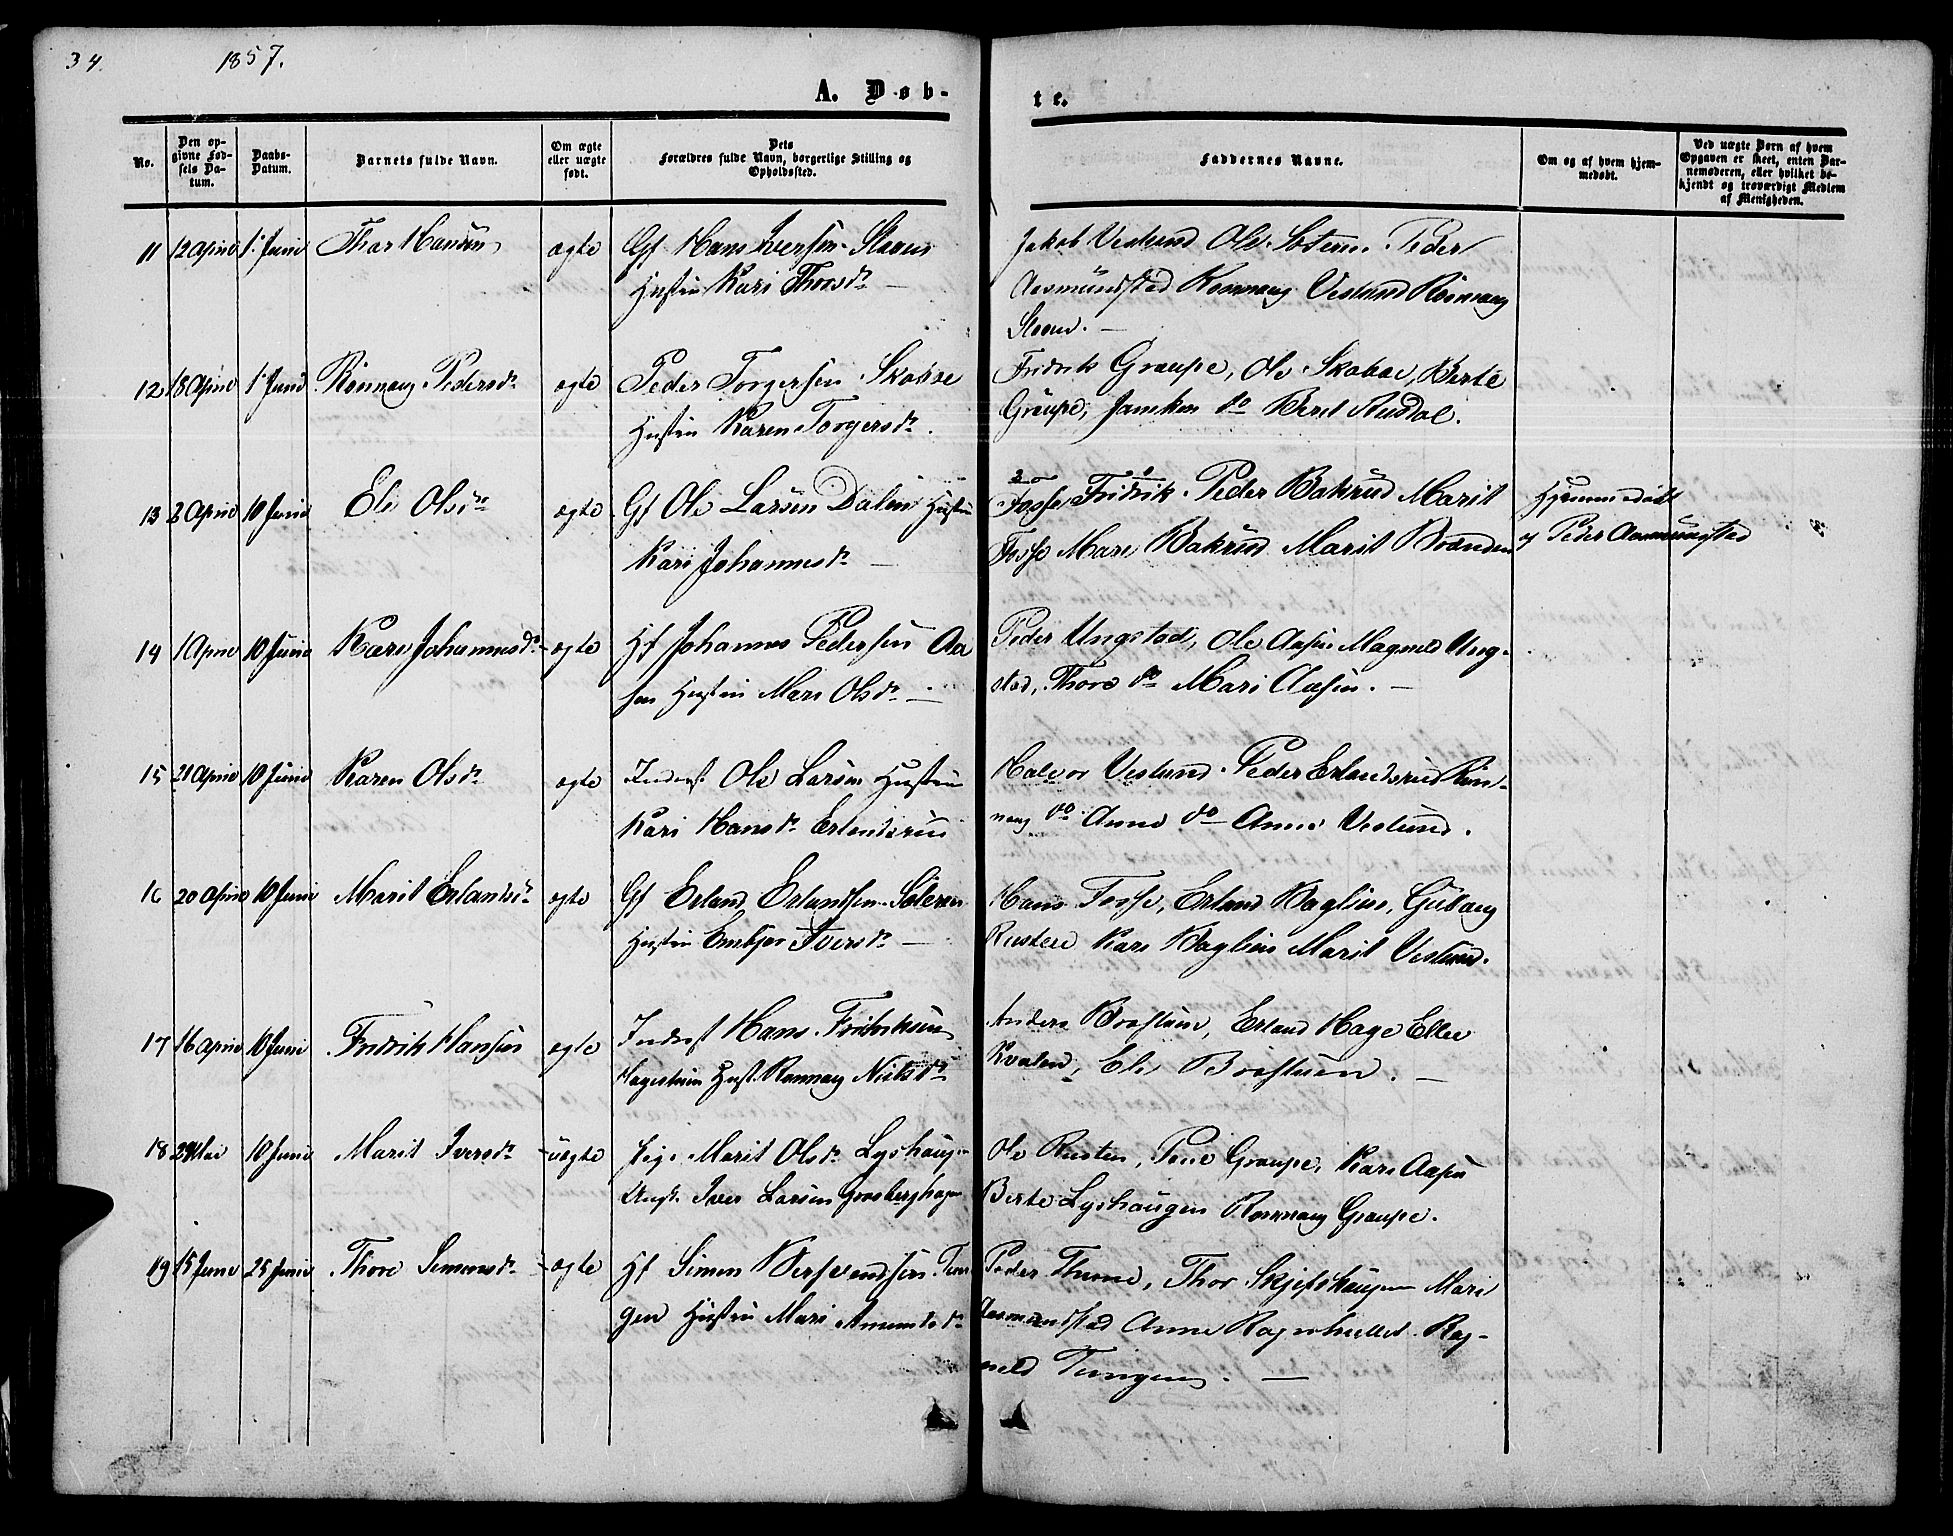 34. 1857.
A. Døb-
te.
No.
Den op-
givne Fød-
sels Da-
tum.
Daabs-
Datum.
Barnets fulde Navn.
Om ægte
eller uægte
født.
Dets
Forældres fulde Navn, borgerlige Stilling og
Opholdssted.
Faddernes Navne.
Om og af hvem hjem-
medøbt.
Ved uægte Børn af hvem
Opgaven er skeet, enten Bar-
nemoderen, eller hvilket be-
kjendt og troværdigt Medlem
af Menigheden.
11 12 April 1 Juni Thor Hansen ægte Gf Hans Iversen
Hustru Kari Thorsdr
Jakob Veslund Ole Peder
Aasmundstad Rønnaug Veslund Rønnaug
12 18 April 1 Juni Rønnaug Pedersdr ægte Peder Torgersen Skabbe
Hustru Karen Torgersdr.
Fridrik Graupe, Ole Skabae, Berte
Graupe, do Beret
13 2 April 10 Juni Eli Olsdr ægte Gf Ole Larsen Dalen Hustru
Kari Johannesdr
Fosse Fridrik Peder Bakrud Marit
Fosse Mari Bakrud Marit Brænden
Hjemmedøbt
af Peder Aasmungstad
14 1 April 10 Juni Kari Johannesdr ægte Hf Johannes Pedersen Aa
sen Hustru Mari Olsdr
Peder Ungstad, Ole Aasen Magnild Ung-
stad, Thore do Mari Aasen.
15 21 April 10 Juni Karen Olsdr ægte Inderst Ole Larsen Hustru
Kari Hansdr Erlandsrud
Halvor Veslund Peder Erlandsrud Røn-
naug do Anne do Anne Veslund.
16 20 April 10 Juni Marit Erlandsdr ægte Gf Erland Erlandsen
Hustru Embjør Iversdr
Hans Fosse, Erland Baglien, Gubaug
Rusten Kari Baglien Marit Veslund.
17 16 April 10 Juni Fridrik Hansen ægte Inderst Hans Fridriksen
Hagestuen Hust. Rønnaug Nielsdr
Anders Brostuen, Erland Hage Ellen
Eli Brostuen.
18 Mai 10 Juni Marit Iversdr uægte Pige Marit Olsdr Lyshaugen
Ungk. Iver Larsen
Ole Rusten, Graupe, Kari Aasen
Berte Lyshaugen Rønnaug Graupe.
19 15 Juni 25 Juni Thore Simensdr ægte Hf Simen
gen Hustru Mari Amundsdr
Peder Thor Mari
Aasmundstad Anne Rag-
nild